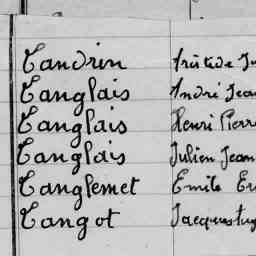 Landrin Aristide Ju
Langlais André Jea
Langlais Henri Pierr
Langlais Julien Jean
Langlemet Emile
Langot Jacques